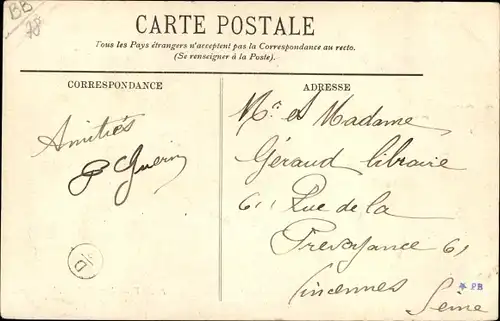 BB
78
CARTE POSTALE
Tous les Pays étrangers n'acceptent pas la Correspondance au recto.
(Se renseigner à la Poste).
CORRESPONDANCE
Amitiés
ADRESSE
Mr et Madame
Géraud libraire
61 Rue de la
Prevoyance 61
Vincennes
Seine
D
* PB